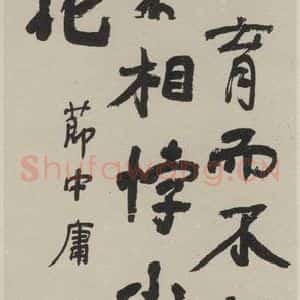 育而不
相悖
節中庸
Shufawang.CN